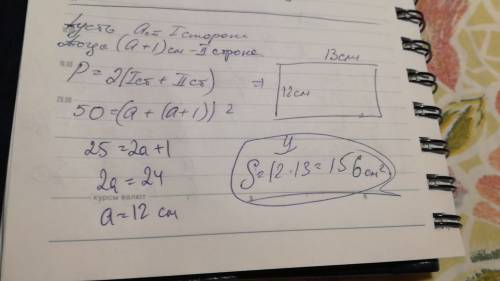 Пусть a см I сторона
тогда (a+1) см - II строна
P = 2(I ст + II ст) ⇒
50 = (a + (a+1)) 2
25 = 2a + 1
2a = 24
курсы валют
a = 12 см
13 см
12 см
S = 12 · 13 = 156 см²